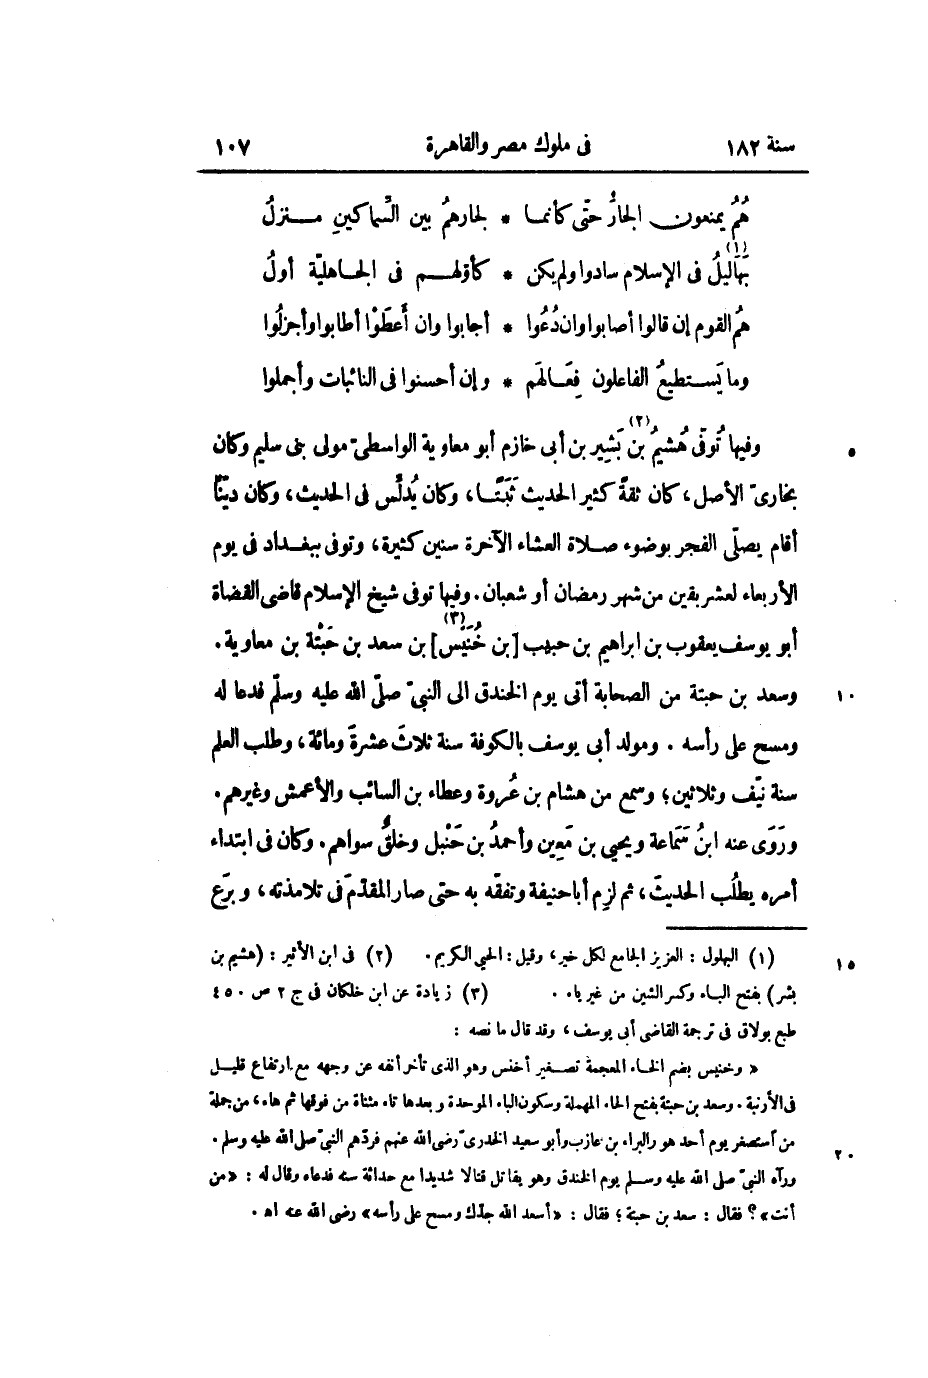 سنة ١٨٢ فى ملوك مصر والقاهرة ١٠٧
هُمُ يمنعون الجارَ حتّى كأنما * لجارهمُ بين السِّماكينِ مـنزلُ
بَهَاليلُ(١) فى الإسلام سادوا ولم يكن * كأوّلهـم فى الجـاهليّة أولُ
همُ القوم إن قالوا أصابوا وان دُعُوا * أجابوا وان أَعطَوْا أطابوا وأجزلُوا
وما يَسـتطيعُ الفاعلون فِعَـالَهم * وإن أحسنوا فى النائبات وأجملوا
وفيها تُوفّى هُشيمُ بن بَشِير(٢) بن أبى خازم أبو معاوية الواسطىّ مولى بنى سليم وكان ٥
بخارىّ الأصل، كان ثقةً كثير الحديث ثَبَتًـا، وكان يُدلِّس فى الحديث، وكان ديّنًا
أقام يصلّى الفجر بوضوء صـلاة العشاء الآخرة سنين كثيرة، وتوفى ببغـداد فى يوم
الأربعاء لعشر بقين من شهر رمضان أو شعبان. وفيها توفى شيخ الإسلام قاضى القضاة
أبو يوسف يعقوب بن ابراهيم بن حبيب [بن خُنَيْس](٣) بن سعد بن حَبْتة بن معاوية.
وسعد بن حبتة من الصحابة أتى يوم الخندق الى النبىّ صلّى الله عليه وسلّم فدعا له ١٠
ومسح على رأسه. ومولد أبى يوسف بالكوفة سنة ثلاثَ عشرةَ ومائة، وطلب العلم
سنة نيّف وثلاثين؛ وسمع من هشام بن عُروة وعطاء بن السائب والأعمش وغيرهم.
ورَوَى عنه ابنُ سَمَاعة ويحيى بن مَعِين وأحمدُ بن حَنْبل وخلقٌ سواهم. وكان فى ابتداء
أمره يطلُب الحديثَ، ثم لزِم أبا حنيفة وتفقّه به حتى صار المقدَّم فى تلامذته، وبرَع
(١) البهلول : العزيز الجامع لكل خير، وقيل : الحيى الكريم. (٢) فى ابن الأثير : (هشيم بن ١٥
بشر) بفتح الباء وكسر الشين من غير ياء. (٣) زيادة عن ابن خلكان فى ج ٢ ص ٤٥٠
طبع بولاق فى ترجمة القاضى أبى يوسف، وقد قال ما نصه :
« وخنيس بضم الخاء المعجمة تصـغير أخنس وهو الذى تأخر أنفه عن وجهه مع ارتفاع قليـل
فى الأرنبة. وسعد بن حبتة بفتح الحاء المهملة وسكون الباء الموحدة وبعدها تاء مثناة من فوقها ثم هاء، من جملة
من آستصغر يوم أحد هو والبراء بن عازب وأبو سعيد الخدرىّ رضى الله عنهم فردّهم النبىّ صلى الله عليه وسلم. ٢٠
ورآه النبىّ صلى الله عليه وسـلم يوم الخندق وهو يقاتل قتالا شديدا مع حداثة سنه فدعاه وقال له : «من
أنت»؟ فقال : سعد بن حبتة ؛ فقال : «أسعد الله جدّك ومسح على رأسه» رضى الله عنه اهـ.